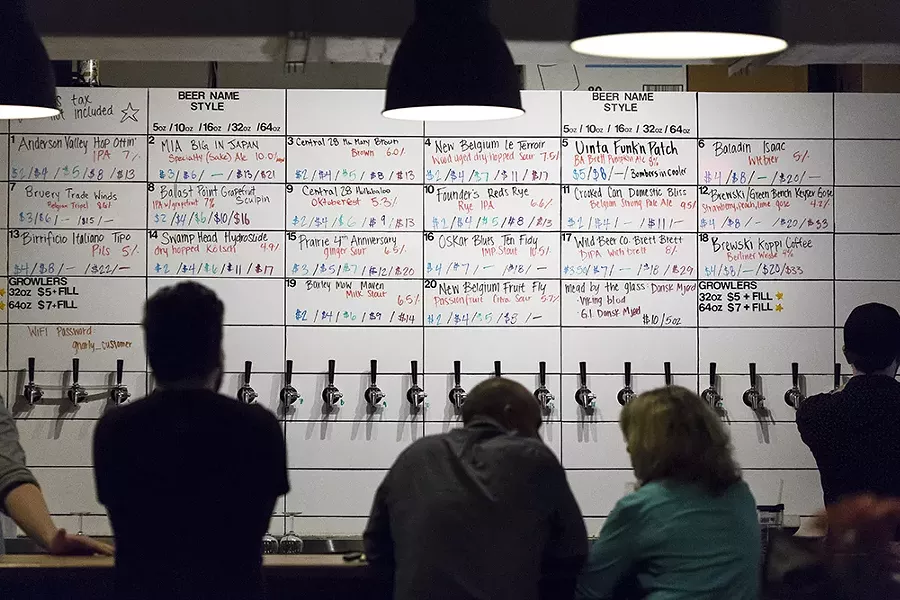 tax
not included
BEER NAME
STYLE
5oz / 10oz / 16oz / 32oz / 64oz
BEER NAME
STYLE
5oz / 10oz / 16oz / 32oz / 64oz
1 Anderson Valley Hop Ottin'
IPA 7%
$2/$4/$5/$8/$13
2 MIA BIG IN JAPAN
Specialty (Sake) Ale 10.0%
$3/$6/-/$13/$21
3 Central 28
Brown 6.0%
$2/$4/$5/$8/$13
4 New Belgium Le Terroir
Wood aged dry hopped Sour 7.5%
$2/$4/$7/$11/$17
5 Uinta Funk'n Patch
BA Brett Pumpkin Ale 9%
$5/$8/-/ Bombers in Cooler
6 Baladin Isaac
Witbier 5%
$4/$8/-/$20/-
7 Bruery Trade Winds
Belgian Tripel
$3/$6/-/$15/-
8 Ballast Point Grapefruit
IPA w/grapefruit 7% Sculpin
$2/$4/$6/$10/$16
9 Central 28 Hullabaloo
Oktoberfest 5.3%
$2/$4/$6/$9/$13
10 Founder's Red's Rye
Rye IPA 6.6%
$2/$4/$5/$8/$13
11 Crooked Can Domestic Bliss
Belgian Strong Pale Ale 9.5%
$2/$4/-/$11/-
12 Brewski/Green Bench Keyser Gose
Strawberry, peach, lime gose 4.2%
$4/$8/-/$20/$33
13 Birrificio Italiano Tipo
Pils 5%
$4/$8/-/$22/-
14 Swamp Head Hydroslide
dry hopped Kolsch 4.9%
$2/$4/$6/$11/$17
15 Prairie 4th Anniversary
ginger Saur 6.5%
$3/$5/$7/$12/$20
16 Oskar Blues Ten Fidy
IMP. Stout 10.5%
$4/$7/-/$18/-
17 Wild Beer Co. Brett Brett
DIPA with brett 8%
$3.50/$7/-/$18/$29
18 Brewski Koppi Coffee
Berliner Weisse 4%
$4/$8/-/$20/$33
GROWLERS
32oz $5+FILL
64oz $7+FILL
19 Barley Mow Maven
Milk Stout 6.5%
$2/$4/$6/$9/$14
20 New Belgium Fruit Fly
Passionfruit Citra Sour 5.7%
$2/$4/$5/$8/-
mead by the glass: Dansk Mjød
viking blod
G.I. Dansk Mjød
$10/5oz
GROWLERS
32oz $5+FILL
64oz $7+FILL
WiFi Password:
gnarly_customer